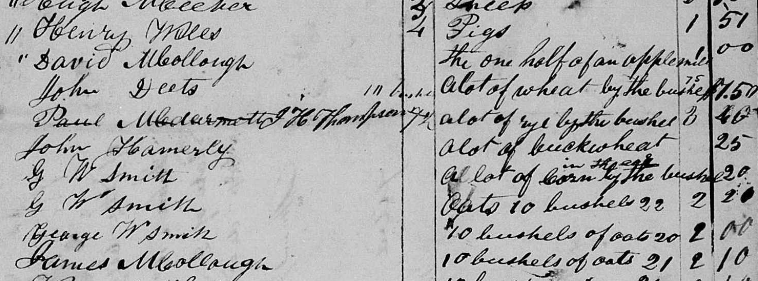 " Hugh Meeker 3 Sheep 2
" Henry Wiles 4 Pigs 1 51
" David McCollough the one half of an applemill 1 00
John Deets a lot of wheat by the bushel 75 7.50
Paul McDarmott J H Thompson a lot of rye by the bushel 40
John Hamerly a lot of buckwheat 25
G W Smith a lot of corn in the ear by the bushel 20
G W Smith Oats 10 bushels 22 2 20
George W Smith 10 bushels of oats 20 2 00
James McCollough 10 bushels of oats 21 2 10